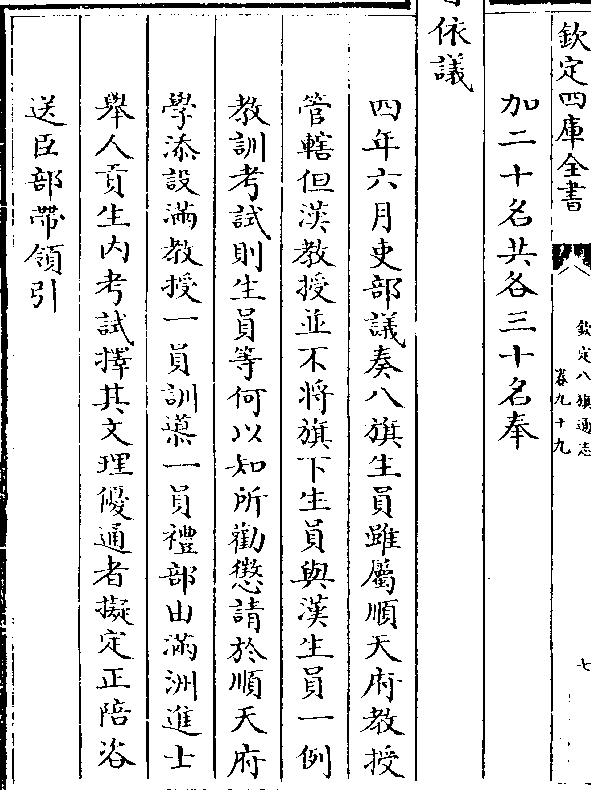 欽定四庫全書
欽定八旗通志
卷九十九
七
加二十名共各三十名奉
依議
四年六月吏部議奏八旗生員雖屬順天府教授
管轄但漢教授並不將旗下生員與漢生員一例
教訓考試則生員等何以知所勸懲請於順天府
學添設滿教授一員訓導一員禮部由滿洲進士
舉人貢生內考試擇其文理優通者擬定正陪咨
送臣部帶領引